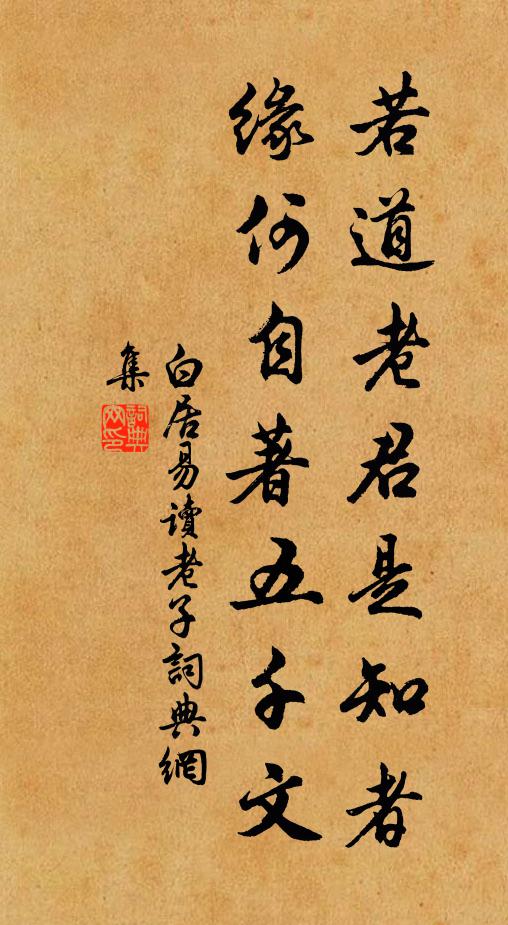 若道老君是知者
緣何自著五千文
白居易讀老子詞典網
集
詞典
网印